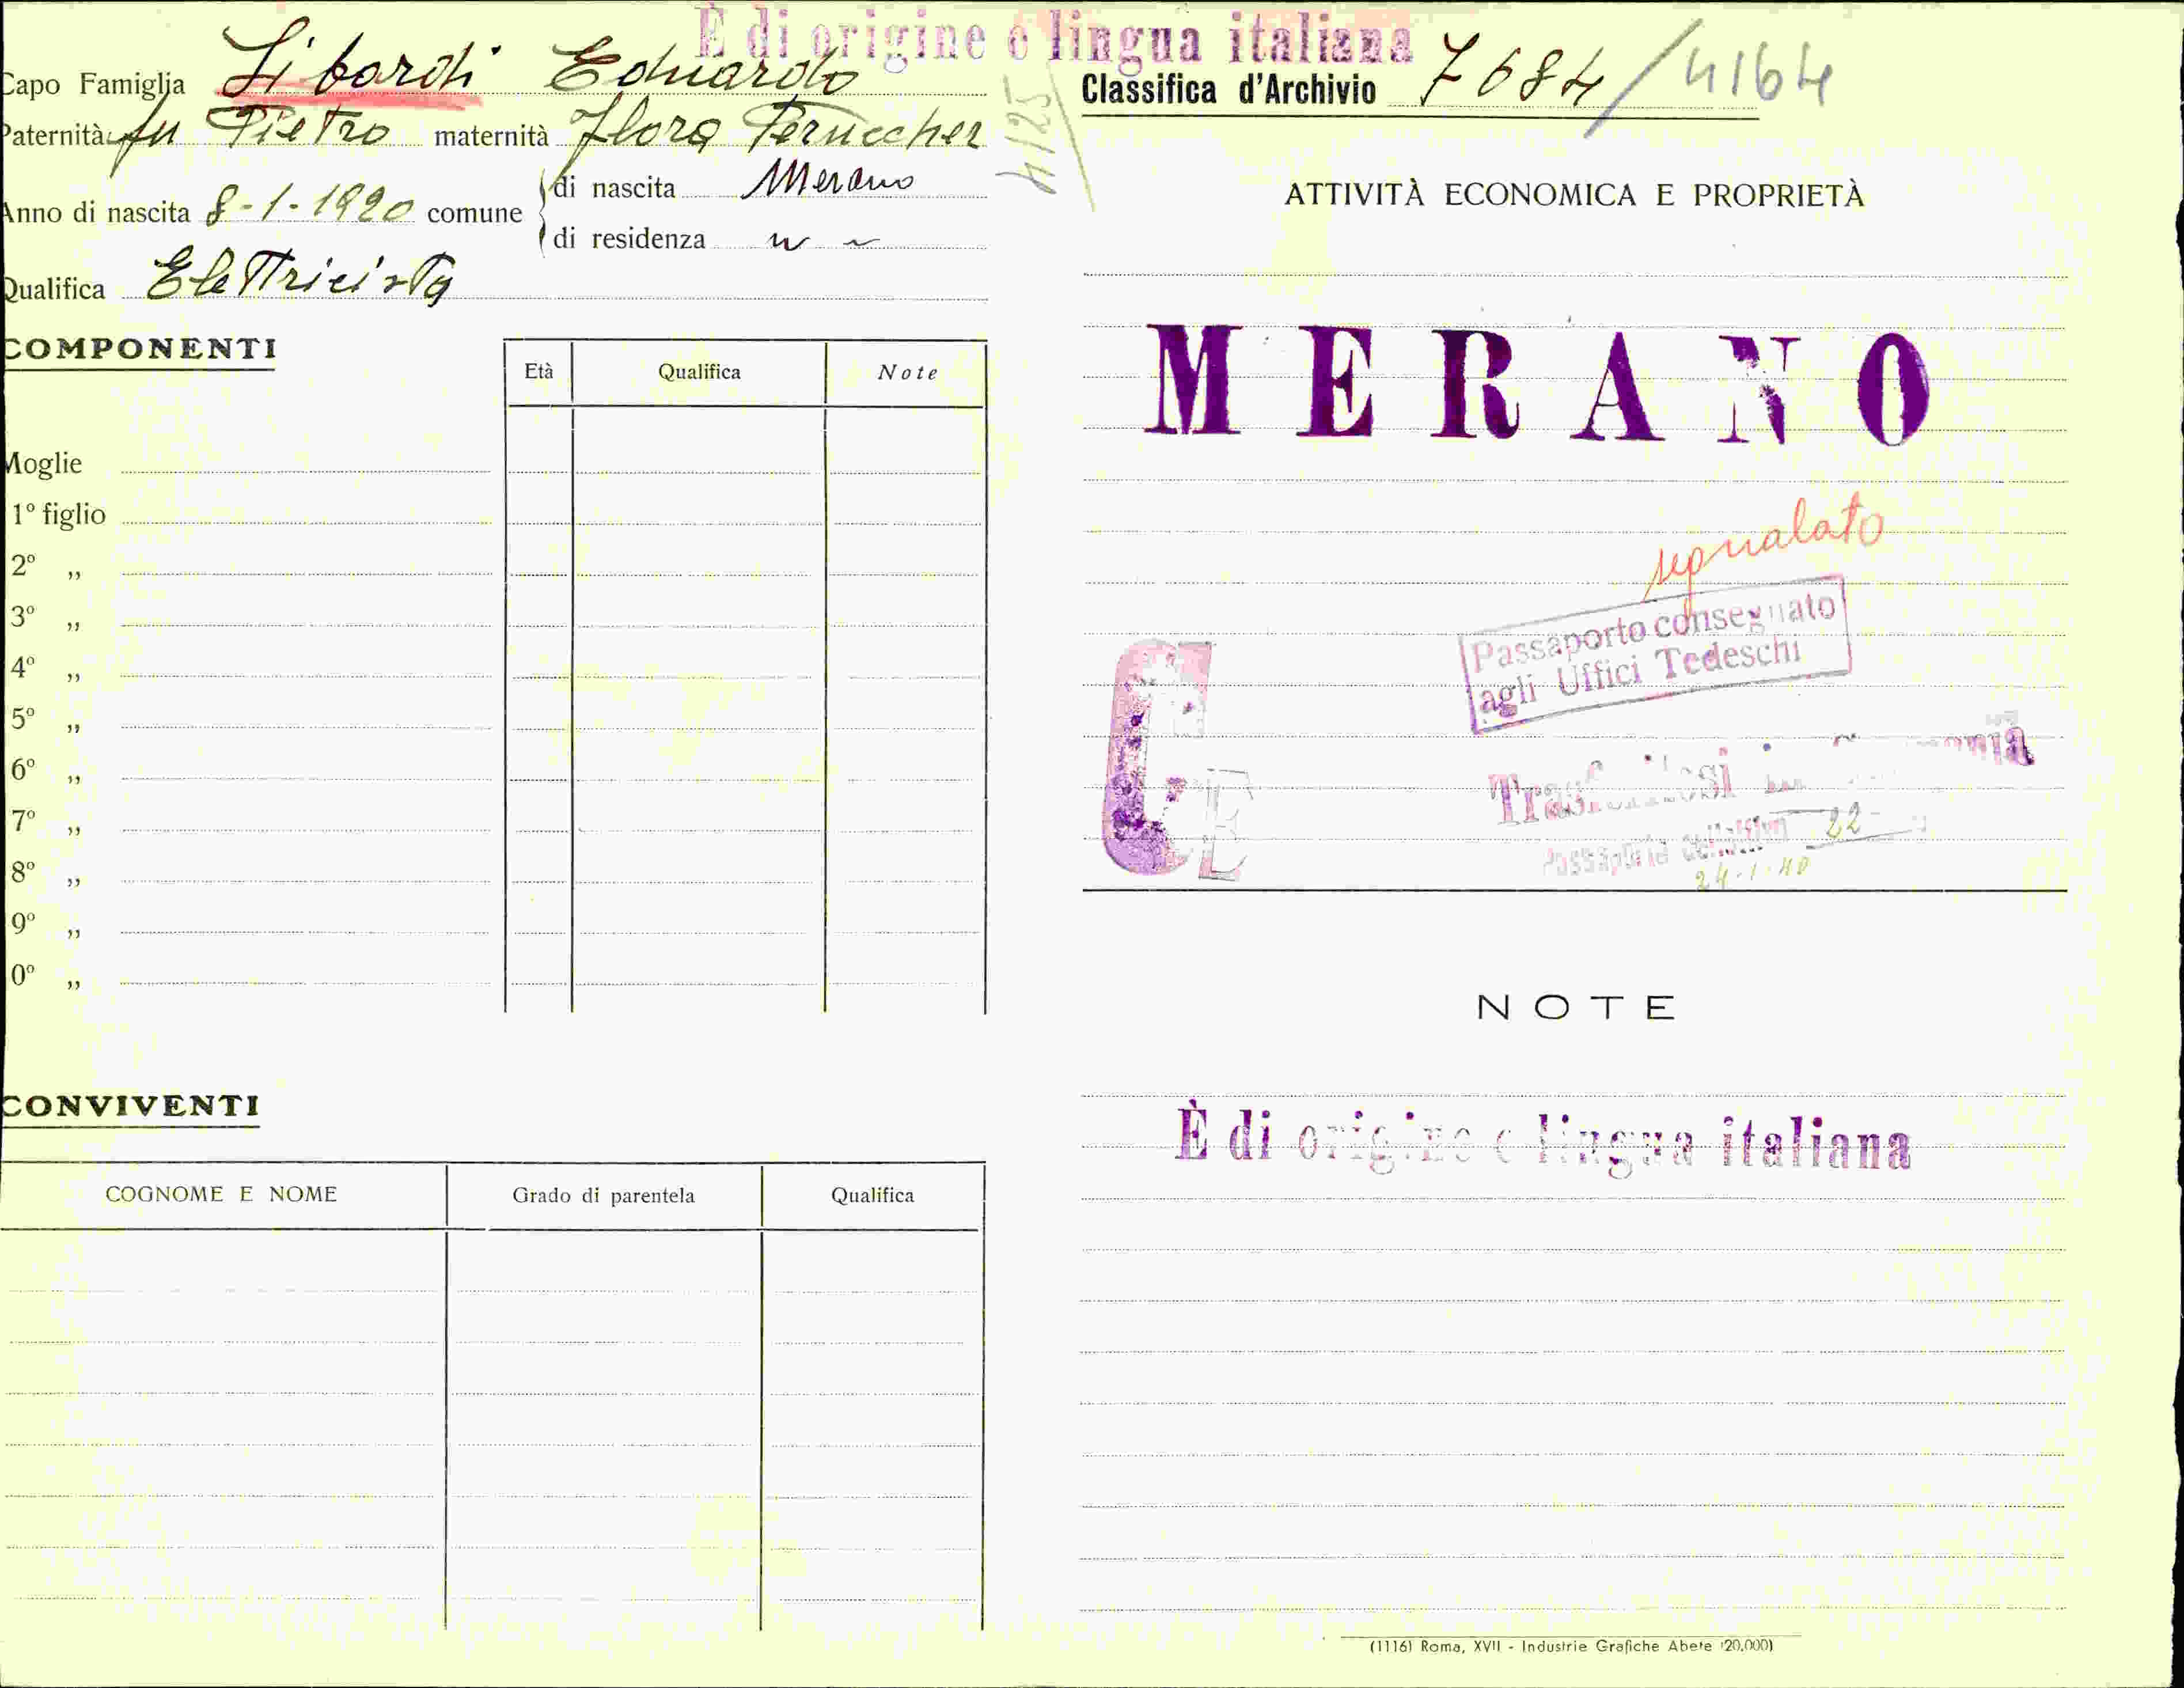 È di origine e lingua italiana
Capo Famiglia Libardi Eduardo
Paternità fu Pietro maternità Flora Peruccher
Anno di nascita 8-1-1920 comune
di nascita Merano
di residenza " "
Qualifica Elettricista
4125
Classifica d'Archivio 7684/4164
COMPONENTI
Età Qualifica Note
Moglie
1º figlio
2º „
3º „
4º „
5º „
6º „
7º „
8º „
9º „
0º „
CONVIVENTI
COGNOME E NOME Grado di parentela Qualifica
ATTIVITÀ ECONOMICA E PROPRIETÀ
MERANO
segnalato
Passaporto consegnato
agli Uffici Tedeschi
CE
Passaporto collettivo 22
24-1-40
NOTE
È di origine e lingua italiana
(1116) Roma, XVII - Industrie Grafiche Abete (20,000)